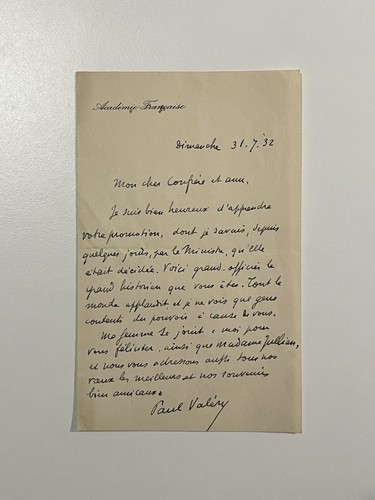 Académie Française
Dimanche 31.7.32
Mon cher Confrère et ami,
Je suis bien heureux d'apprendre
votre promotion, dont je savais, depuis
quelques jours, par le Ministre, qu'elle
était décidée. Voici grand-officier le
grand historien que vous êtes. Tout le
monde applaudit et je ne vois que gens
contents du pouvoir à cause de vous.
Ma femme se joint à moi pour
vous féliciter, ainsi que Madame Jullian,
et nous vous adressons aussi tous nos
vœux les meilleurs et nos souvenirs
bien amicaux.
Paul Valéry